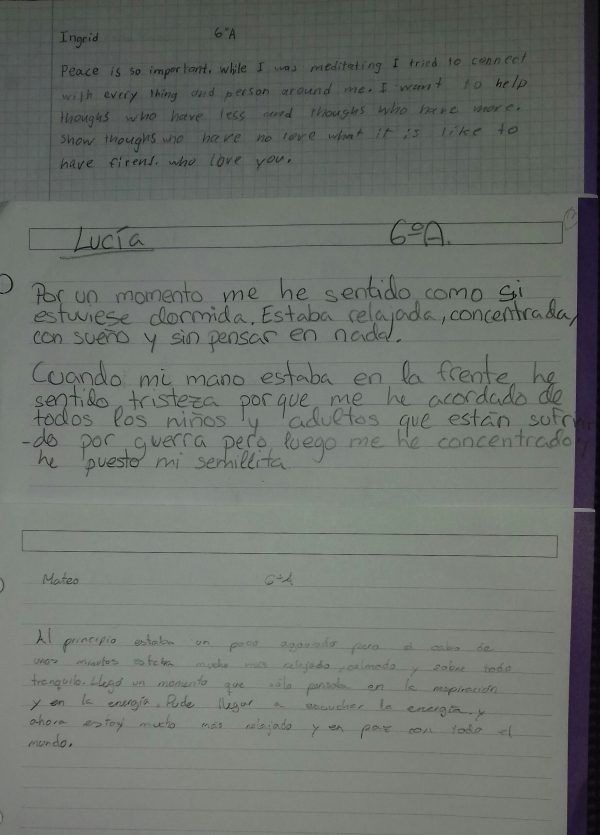 Ingrid 6ºA
Peace is so important. while I was meditating I tried to connect
with every thing and person around me. I want to help
thoughs who have less and thoughs who have more.
show thoughs who have no love what it is like to
have firens. who love you.
Lucía 6ºA.
Por un momento me he sentido como si
estuviese dormida. Estaba relajada, concentrada,
con sueño y sin pensar en nada.
Cuando mi mano estaba en la frente he
sentido tristeza porque me he acordado de
todos los niños y adultos que están sufrien
-do por guerra pero luego me he concentrado y
he puesto mi semillita.
Mateo 6ºA
Al principio estaba un poco pero a cabo de
unos minutos estaba mucho más relajado, calmado y sobre todo
tranquilo. Llegó un momento que sólo pensaba en la respiración
y en la energía. Pude llegar a escuchar la energía y
ahora estoy mucho más relajado y en paz con todo el
mundo.